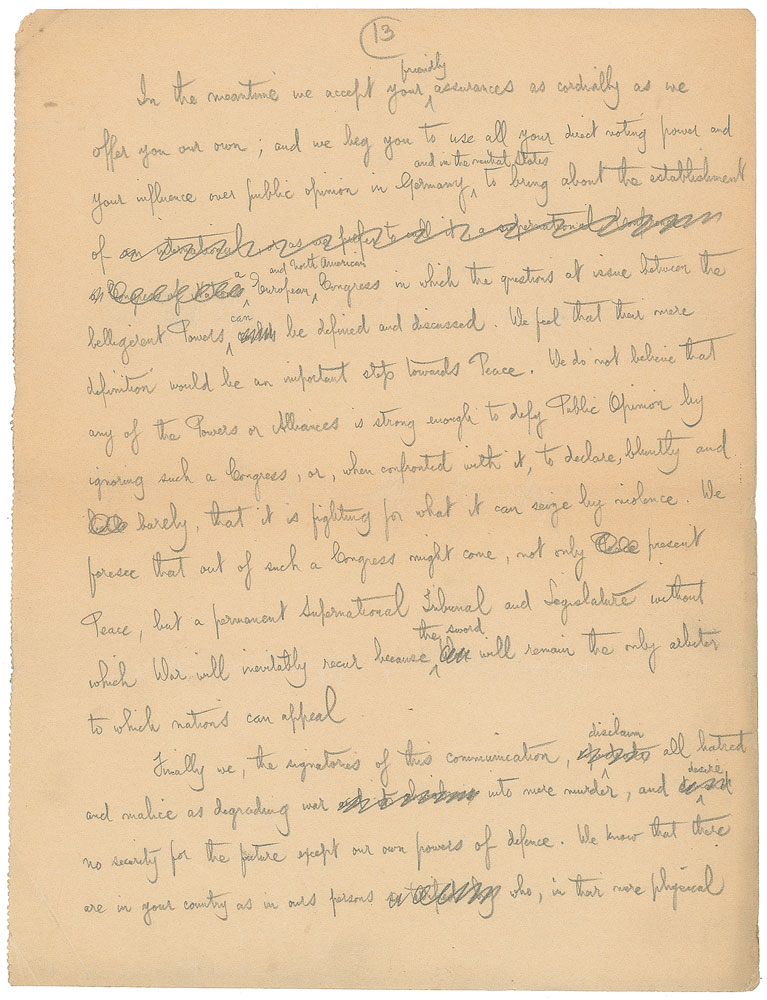 13
friendly
In the meantime we accept your assurances as cordially as we
offer you our own; and we beg you to use all your direct voting power and
and in the neutral States
your influence over public opinion in Germany, to bring about the establishment
of
a and North American
European Congress in which the questions at issue between the
can
belligerent Powers be defined and discussed. We feel that their mere
definition would be an important step towards Peace. We do not believe that
any of the Powers or Alliances is strong enough to defy Public Opinion by
ignoring such a Congress, or, when confronted with it, to declare, bluntly and
barely, that it is fighting for what it can seize by violence. We
foresee that out of such a Congress might come, not only present
Peace, but a permanent Supernational Tribunal and Legislature without
the sword
which War will inevitably recur because will remain the only arbiter
to which nations can appeal
disclaim
Finally we, the signatories of this communication, all hatred
desire
and malice as degrading war into mere murder, and
no security for the future except our own powers of defence. We know that there
are in your country as in ours persons who, in their mere physical